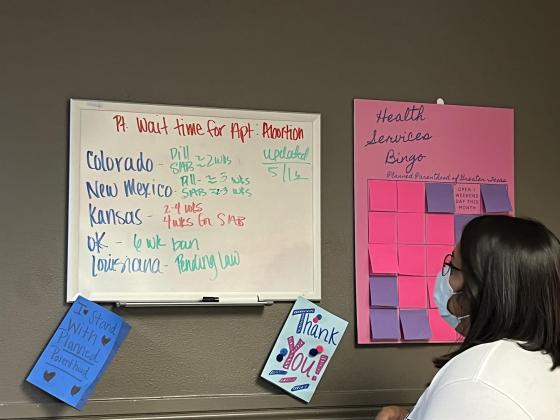 Pt. Wait time for Apt: Abortion
updated
5/13
Colorado - Pill
SAB ≈ 2 wks
New Mexico - Pill - ≈ 3 wks
SAB ≈ 2-3 wks
Kansas - 2-4 wks
4 wks for SAB
OK - 6 wk ban
Louisiana - Pending Law
I Stand
With
Planned
Parenthood
Thank
You!
Health
Services
Bingo
Planned Parenthood of Greater Texas
OPEN 1
WEEKEND
DAY THIS
MONTH